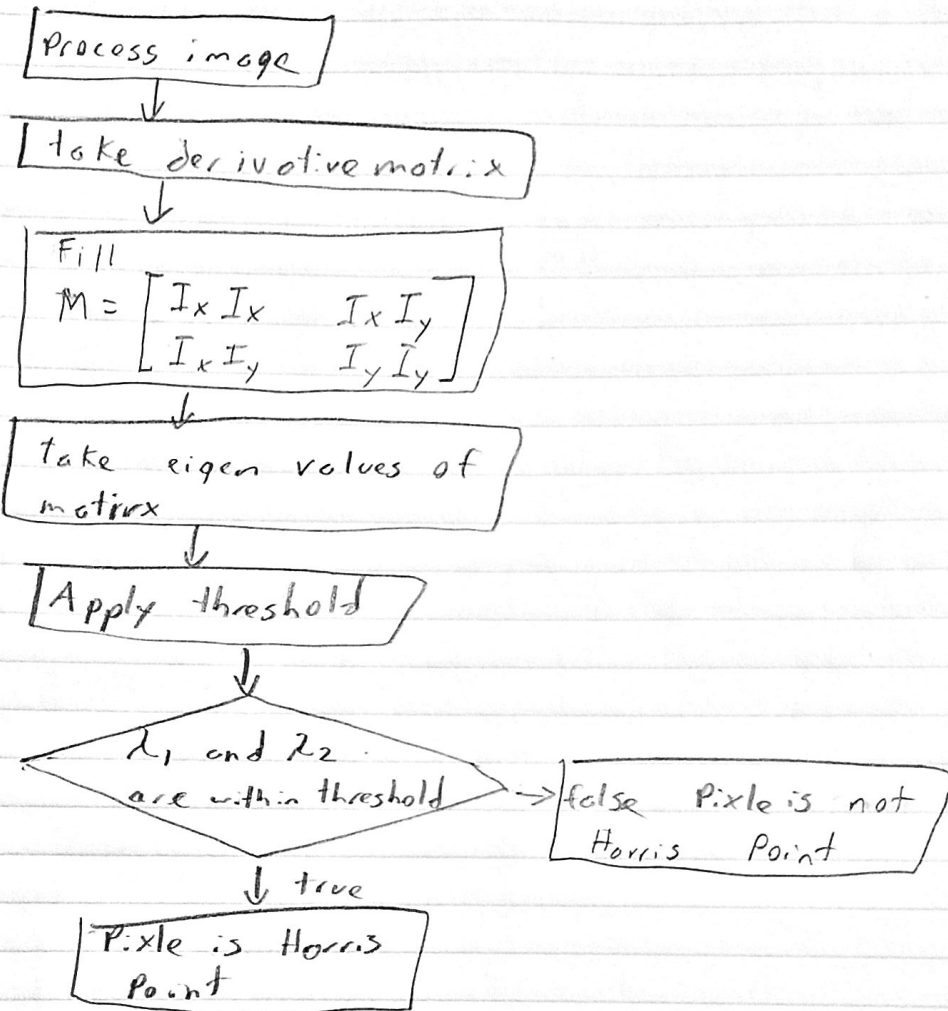 Process image
take derivative matrix
Fill
M = [ I_x I_x   I_x I_y
I_x I_y   I_y I_y ]
take eigen values of
matirx
Apply threshold
λ₁ and λ₂
are within threshold
false Pixle is not
Harris Point
true
Pixle is Harris
Point